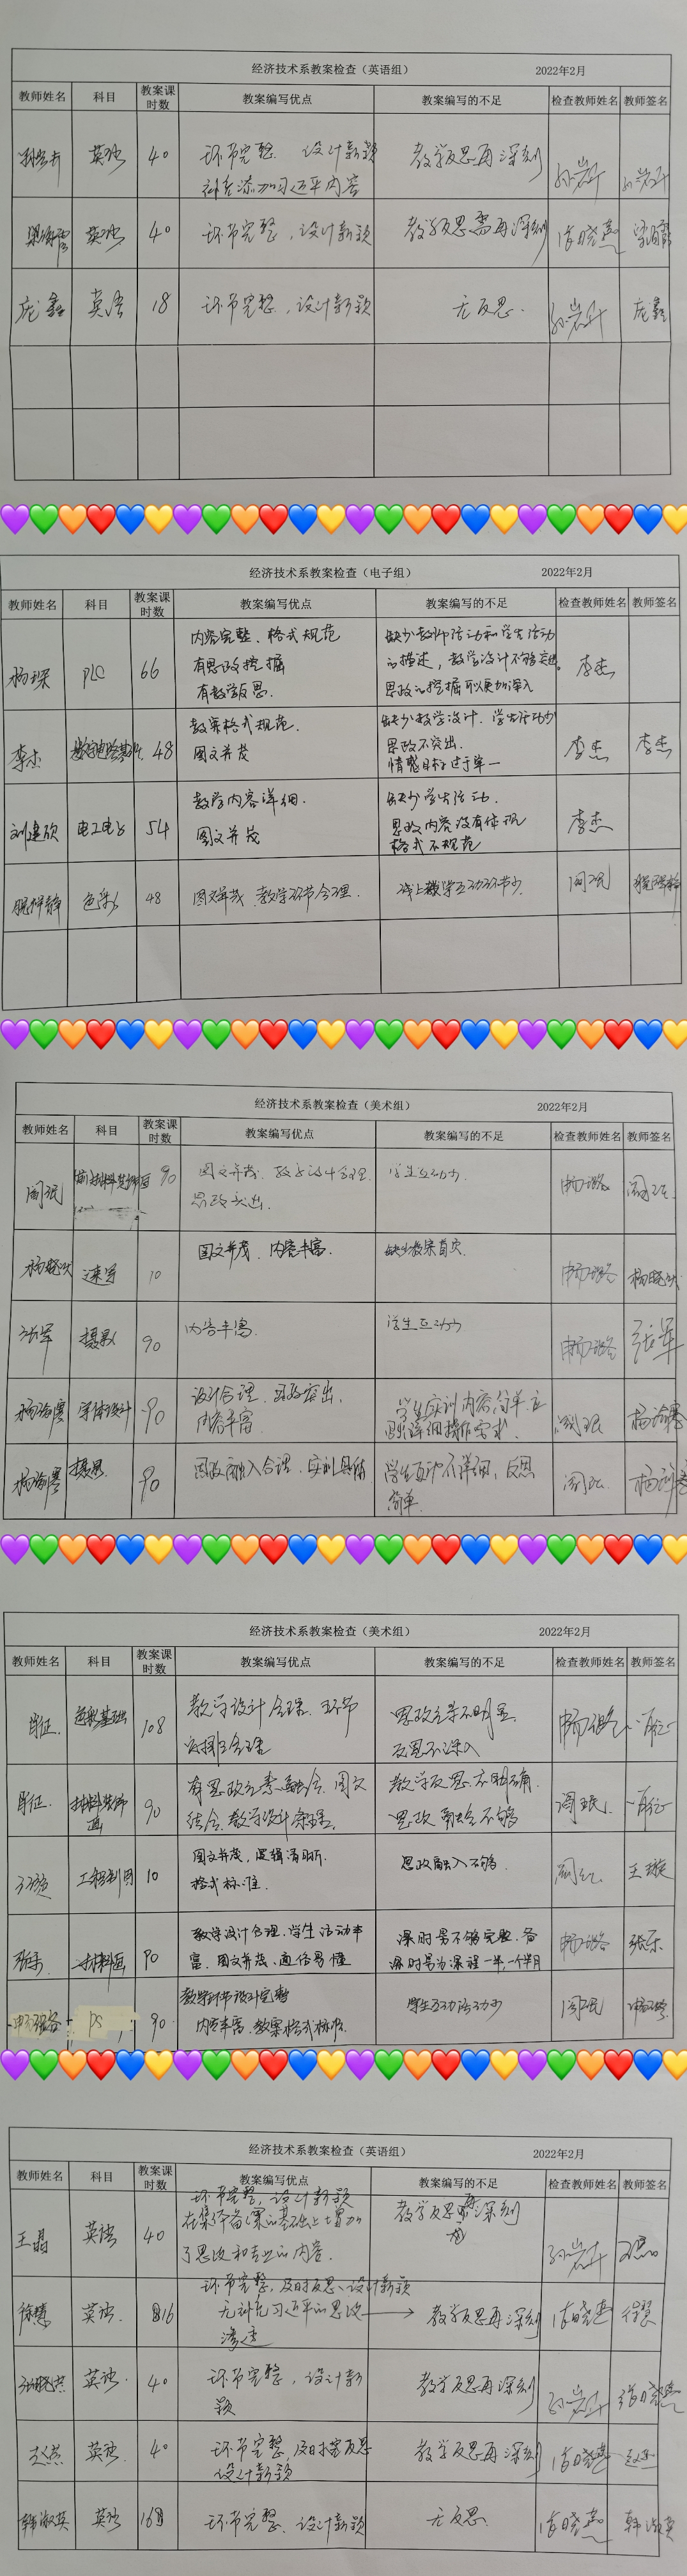 经济技术系教案检查（英语组） 2022年2月
教师姓名 科目 教案课时数 教案编写优点 教案编写的不足 检查教师姓名 教师签名
孙岩卉 英语 40 环节完整、设计新颖 教学反思再深刻 孙岩卉 孙岩卉
补充添加习近平内容
英语 40 环节完整，设计新颖 教学反思需再深刻 张晓燕
庞鑫 英语 18 环节完整，设计新颖 无反思. 孙岩卉 庞鑫
经济技术系教案检查（电子组） 2022年2月
教师姓名 科目 教案课时数 教案编写优点 教案编写的不足 检查教师姓名 教师签名
杨琛 PLC 66 内容完整、格式规范 缺少教师活动和学生活动 李杰
有思政挖掘 的描述，教学设计不够突出。
有教学反思. 思政的挖掘可以更加深入
李杰 48 教案格式规范. 缺少教学设计. 学生活动少 李杰 李杰
图文并茂 思政不突出.
情感目标过于单一
刘建硕 电工电子 54 教学内容详细. 缺少学生活动. 李杰
图文并茂 思政内容没有体现
格式不规范
色彩 48 图文并茂 教学环节合理. 线上教学互动环节少 阎珉
经济技术系教案检查（美术组） 2022年2月
教师姓名 科目 教案课时数 教案编写优点 教案编写的不足 检查教师姓名 教师签名
阎珉 90 图文并茂. 教学设计合理 学生互动少. 申丽璐 阎珉
思政突出.
杨晓欣 速写 10 图文并茂、内容丰富. 缺少教案首页. 申丽璐 杨晓欣
张军 摄影 90 内容丰富. 学生互动少 申丽璐 张军
杨渝骞 字体设计 90 设计合理、思政突出， 学生实训内容简单，应 阎珉 杨渝骞
内容丰富 详细操作要求.
杨渝骞 摄影 90 思政融入合理、实训具体 学生互动不详细，反思 阎珉 杨渝骞
简单.
经济技术系教案检查（美术组） 2022年2月
教师姓名 科目 教案课时数 教案编写优点 教案编写的不足 检查教师姓名 教师签名
肖征. 造型基础 108 教学设计合理、环节 思政元素不明显 申丽璐 肖征
安排合理 反思不深入
肖征. 材料装饰画 90 有思政元素融合、图文 教学反思不明确. 阎珉. 肖征
结合.教学设计合理. 思政融合不够
王璇 工程制图 10 图文并茂，逻辑清晰. 思政融入不够. 阎珉 王璇
格式标准.
张乐 材料画 90 教学设计合理.学生活动丰 课时号不够完整.备 申丽璐 张乐
富、图文并茂、通俗易懂 课时号为课程一半，一个半月
申丽璐 PS 90 教学环节设计完整 学生互动活动少 阎珉 申丽璐
内容丰富.教案格式标准.
经济技术系教案检查（英语组） 2022年2月
教师姓名 科目 教案课时数 教案编写优点 教案编写的不足 检查教师姓名 教师签名
王晶 英语 40 环节完整，设计新颖 教学反思再深刻 孙岩卉 王晶
在集体备课的基础上增加
了思政和专业的内容.
徐慧 英语. 16 环节完整，及时反思、设计新颖 教学反思再深刻 张晓燕 徐慧
无补充习近平的思政 →
渗透
张晓燕 英语. 40 环节完整，设计新 教学反思再深刻 孙岩卉 张晓燕
颖
赵燕 英语. 40 环节完整，及时写反思 教学反思再深刻 张晓燕 赵燕
设计新颖
韩淑英 英语 16 环节完整、设计新颖 无反思. 张晓燕 韩淑英